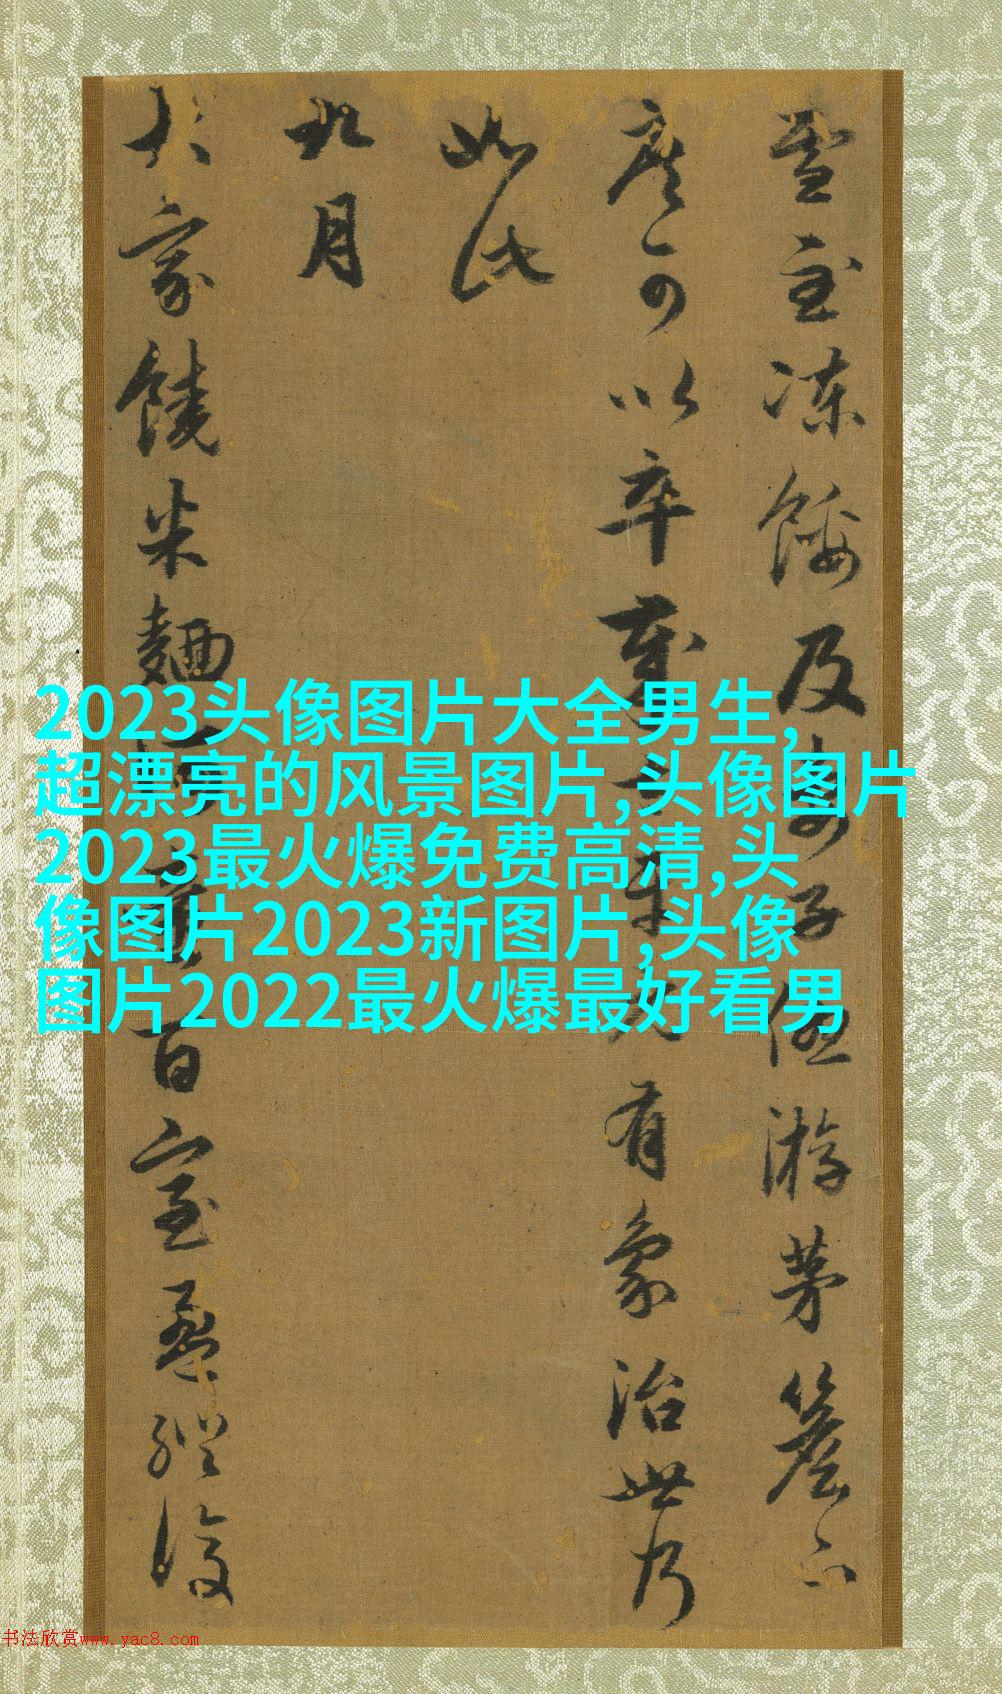 2023头像图片大全男生,
超漂亮的风景图片,头像图片
2023最火爆免费高清,头
像图片2023新图片,头像
图片2022最火爆最好看男
雪至凍餒及妻子茅簷下
可以卒歲有象治世乃
如此
九月
大家饒米麵百室盈縱復
书法欣赏www.yac8.com